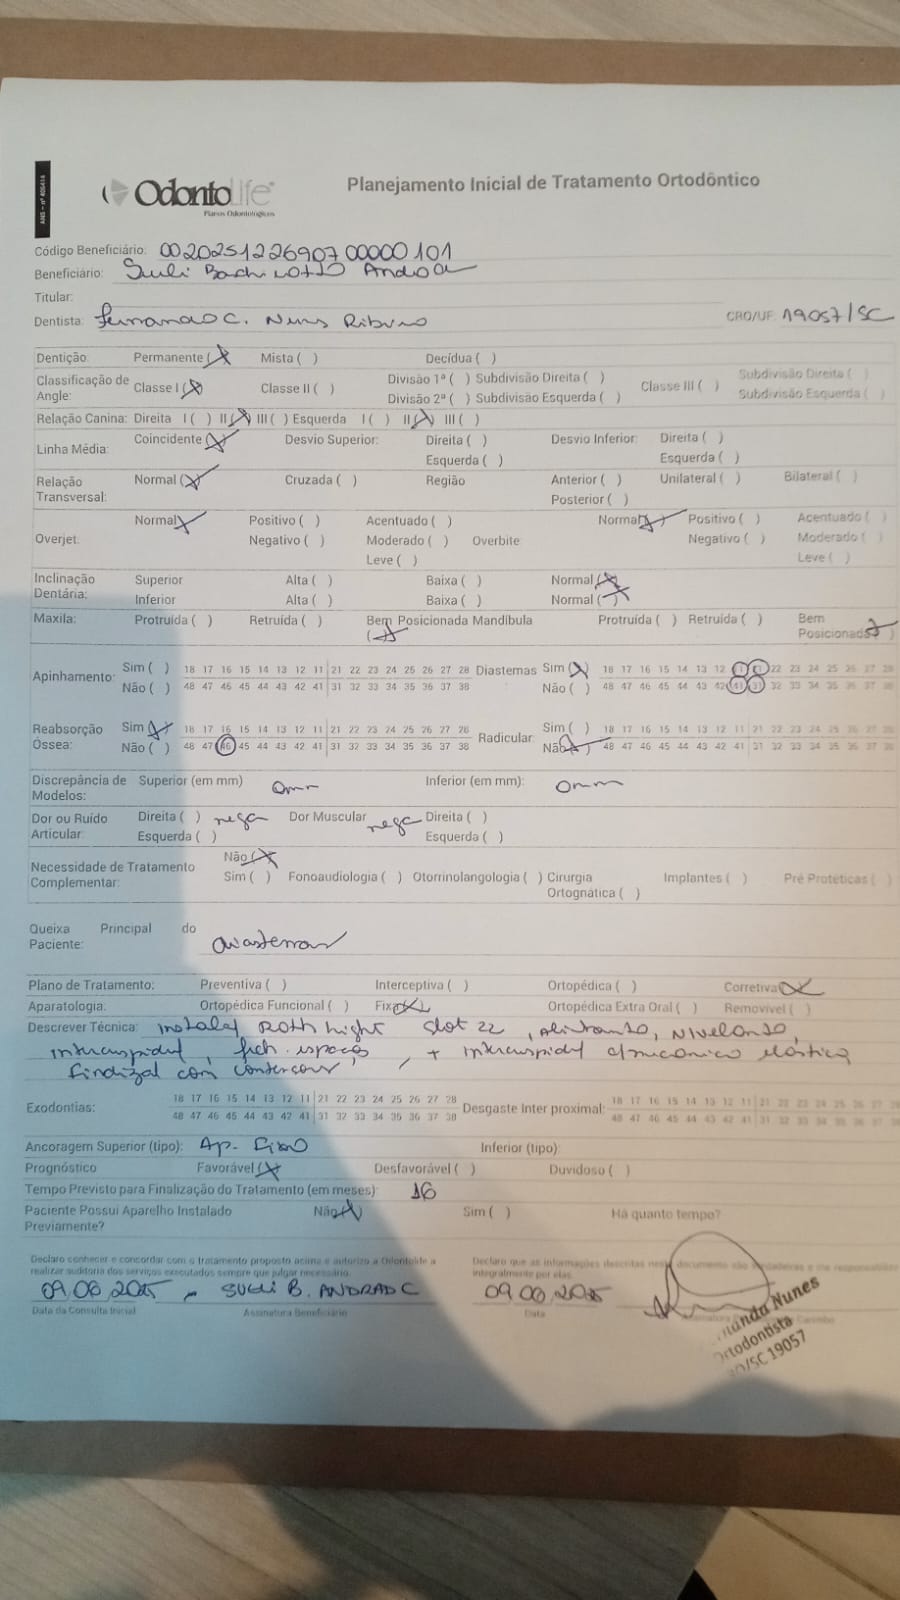 ANS - nº 405414
OdontoLife
Planos Odontológicos
Planejamento Inicial de Tratamento Ortodôntico
Código Beneficiário: 002025122690700000101
Beneficiário: Suli
Titular:
Dentista: Fernanda C. Nunes Ribeiro CRO/UF: 19057/SC
Dentição: Permanente (X) Mista ( ) Decídua ( )
Classificação de Angle: Classe I (X) Classe II ( ) Divisão 1ª ( ) Subdivisão Direita ( ) Classe III ( ) Subdivisão Direita ( )
Divisão 2ª ( ) Subdivisão Esquerda ( ) Subdivisão Esquerda ( )
Relação Canina: Direita I ( ) II (X) III ( ) Esquerda I ( ) II (X) III ( )
Linha Média: Coincidente (X) Desvio Superior: Direita ( ) Desvio Inferior: Direita ( )
Esquerda ( ) Esquerda ( )
Relação Transversal: Normal (X) Cruzada ( ) Região Anterior ( ) Unilateral ( ) Bilateral ( )
Posterior ( )
Overjet: Normal (X) Positivo ( ) Acentuado ( ) Overbite Normal (X) Positivo ( ) Acentuado ( )
Negativo ( ) Moderado ( ) Negativo ( ) Moderado ( )
Leve ( ) Leve ( )
Inclinação Dentária: Superior Alta ( ) Baixa ( ) Normal (X)
Inferior Alta ( ) Baixa ( ) Normal (X)
Maxila: Protruída ( ) Retruída ( ) Bem Posicionada (X) Mandíbula Protruída ( ) Retruída ( ) Bem Posicionada (X)
Apinhamento: Sim ( ) 18 17 16 15 14 13 12 11 21 22 23 24 25 26 27 28 Diastemas Sim (X) 18 17 16 15 14 13 12 11 21 22 23 24 25 26 27 28
Não ( ) 48 47 46 45 44 43 42 41 31 32 33 34 35 36 37 38 Não ( ) 48 47 46 45 44 43 42 41 31 32 33 34 35 36 37 38
Reabsorção Óssea: Sim (X) 18 17 16 15 14 13 12 11 21 22 23 24 25 26 27 28 Radicular: Sim ( ) 18 17 16 15 14 13 12 11 21 22 23 24 25 26 27 28
Não ( ) 48 47 46 45 44 43 42 41 31 32 33 34 35 36 37 38 Não (X) 48 47 46 45 44 43 42 41 31 32 33 34 35 36 37 38
Discrepância de Modelos: Superior (em mm) 0mm Inferior (em mm): 0mm
Dor ou Ruído Articular: Direita ( ) nega Dor Muscular nega Direita ( )
Esquerda ( ) Esquerda ( )
Necessidade de Tratamento Complementar: Não (X)
Sim ( ) Fonoaudiologia ( ) Otorrinolangologia ( ) Cirurgia Ortognática ( ) Implantes ( ) Pré Protéticas ( )
Queixa Principal do Paciente: diastemas
Plano de Tratamento: Preventiva ( ) Interceptiva ( ) Ortopédica ( ) Corretiva (X)
Aparatologia: Ortopédica Funcional ( ) Fixa (X) Ortopédica Extra Oral ( ) Removível ( )
Descrever Técnica: Roth slot 22, Alinhando, Nivelando,
fech. espaços, + c/mecânica elástica
Exodontias: 18 17 16 15 14 13 12 11 21 22 23 24 25 26 27 28 Desgaste Inter proximal: 18 17 16 15 14 13 12 11 21 22 23 24 25 26 27 28
48 47 46 45 44 43 42 41 31 32 33 34 35 36 37 38 48 47 46 45 44 43 42 41 31 32 33 34 35 36 37 38
Ancoragem Superior (tipo): Ap. Fixo Inferior (tipo):
Prognóstico Favorável (X) Desfavorável ( ) Duvidoso ( )
Tempo Previsto para Finalização do Tratamento (em meses): 16
Paciente Possui Aparelho Instalado Previamente? Não (X) Sim ( ) Há quanto tempo?
Declaro conhecer e concordar com o tratamento proposto acima e autorizo a Odontolife a
realizar auditoria dos serviços executados sempre que julgar necessário.
Declaro que as informações descritas
integralmente por elas.
SUELI B. ANDRADE
Data da Consulta Inicial Assinatura Beneficiário Data
Nunes
Ortodontista
SC 19057